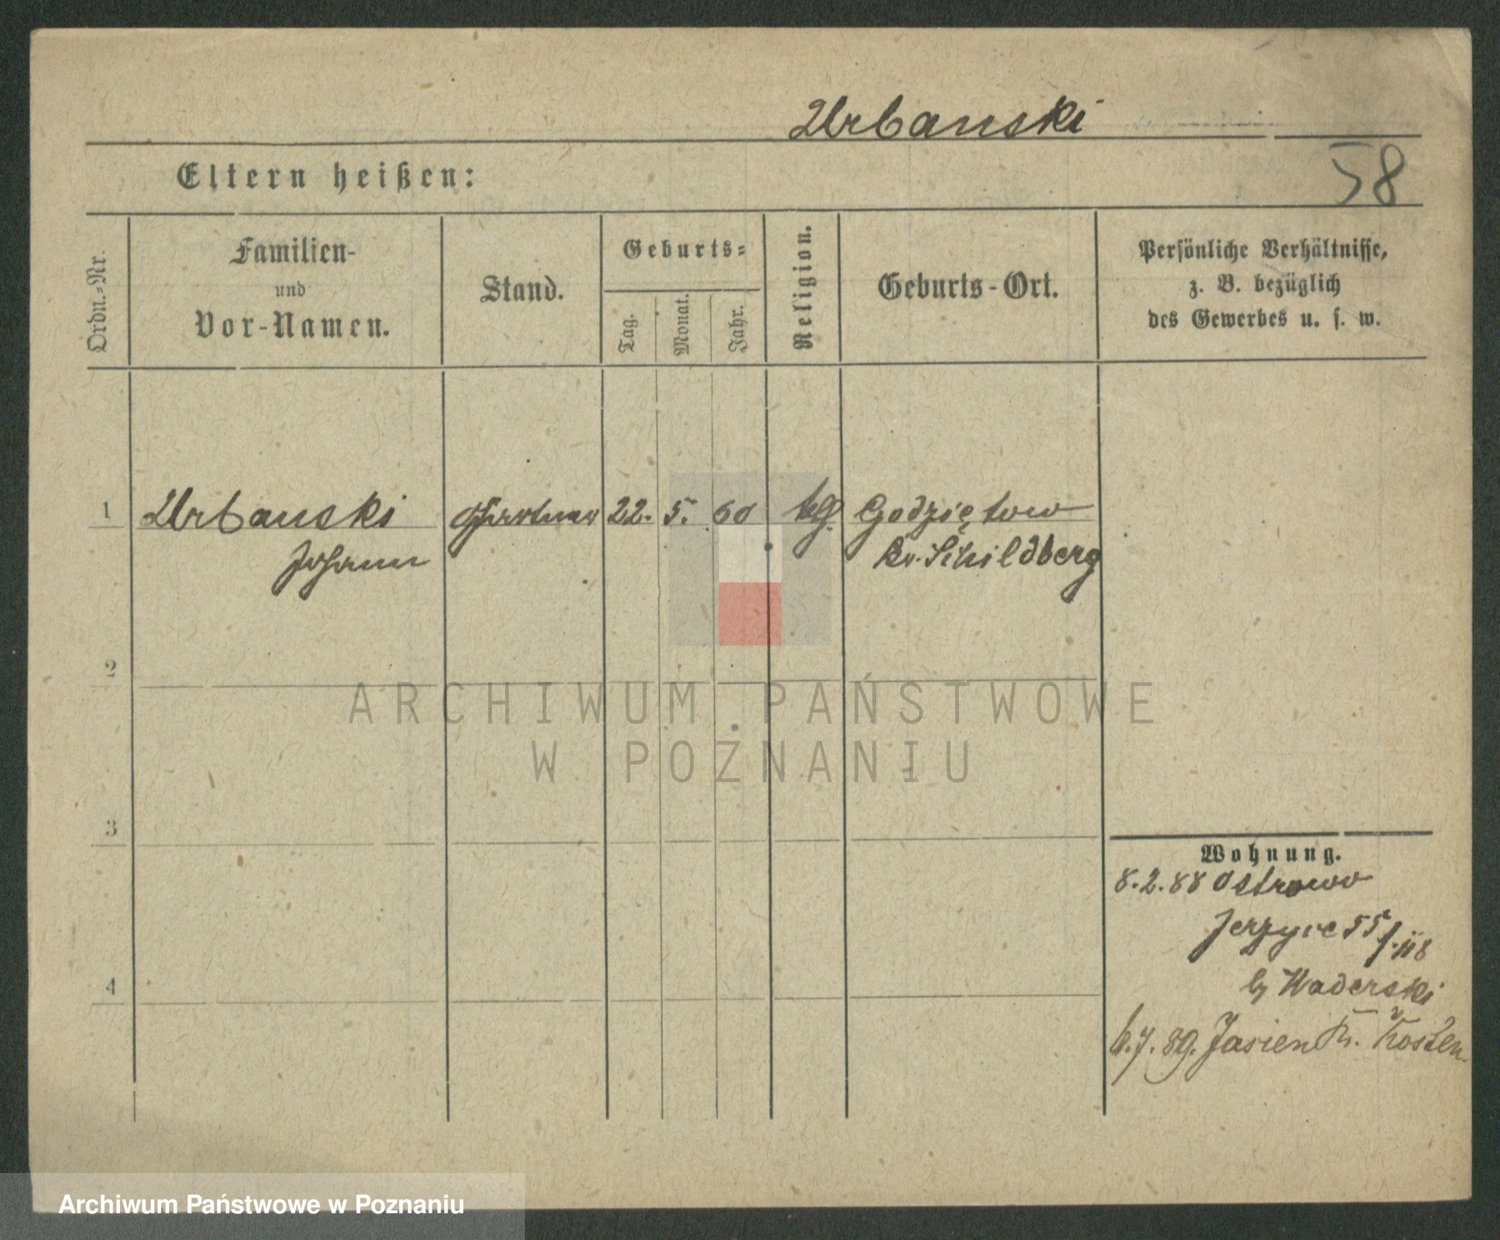 Urbanski
58
Eltern heißen:
Ordn.-Nr.
Familien-
und
Vor-Namen.
Stand.
Geburts-
Tag.
Monat.
Jahr.
Religion.
Geburts-Ort.
Persönliche Verhältnisse,
z. B. bezüglich
des Gewerbes u. s. w.
1 Urbanski 22. 5. 60 kg Godziętow
Johann Kr. Schildberg
2
ARCHIWUM PAŃSTWOWE
W POZNANIU
3
Wohnung.
8.2.88 Ostrowo
Jerzyce 55
b/ Waderski
4
6.7.89. Jasien Kr. Kosten.
Archiwum Państwowe w Poznaniu